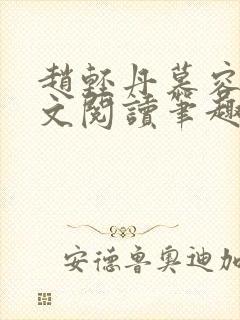 趙輕丹慕容
文閱讀筆趣
安德魯奧迪加